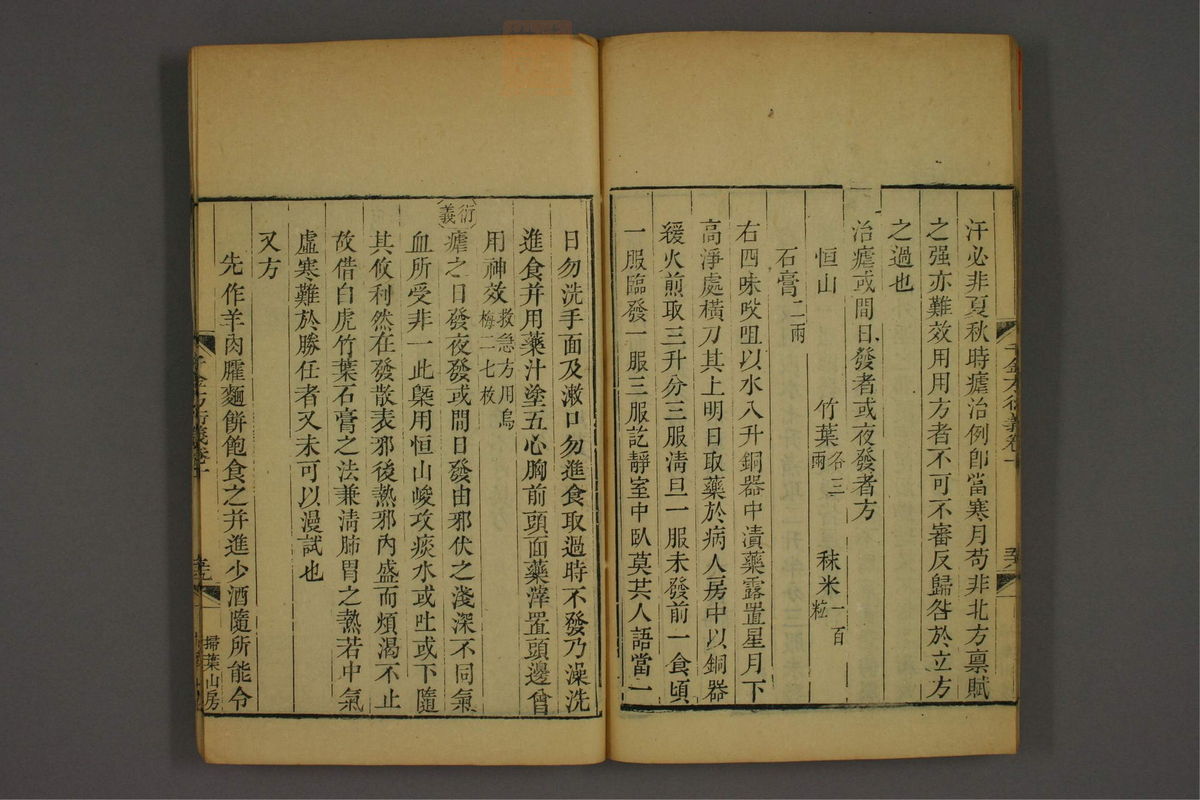 汗必非夏秋時瘧治例卽當寒月苟非北方禀賦
之强亦難效用用方者不可不審反歸咎於立方
之過也
治瘧或間日發者或夜發者方
恒山　竹葉各三兩　秫米一百粒
石膏二兩
右四味㕮咀以水八升銅器中漬藥露置星月下
高淨處橫刀其上明日取藥於病人房中以銅器
緩火煎取三升分三服淸旦一服未發前一食頃
一服臨發一服三服訖靜室中臥莫共人語當一
日勿洗手面及漱口勿進食取過時不發乃澡洗
進食并用藥汁塗五心胸前頭面藥滓置頭邊曾
用神效救急方用烏梅二七枚
衍義
瘧之日發夜發或間日發由邪伏之淺深不同氣
血所受非一此槩用恒山峻攻痰水或吐或下隨
其攸利然在發散表邪後熱邪內盛而煩渴不止
故借白虎竹葉石膏之法兼淸肺胃之熱若中氣
虛寒難於勝任者又未可以漫試也
又方
先作羊肉臛麵餅飽食之并進少酒隨所能令
千金方衍義卷十
掃葉山房